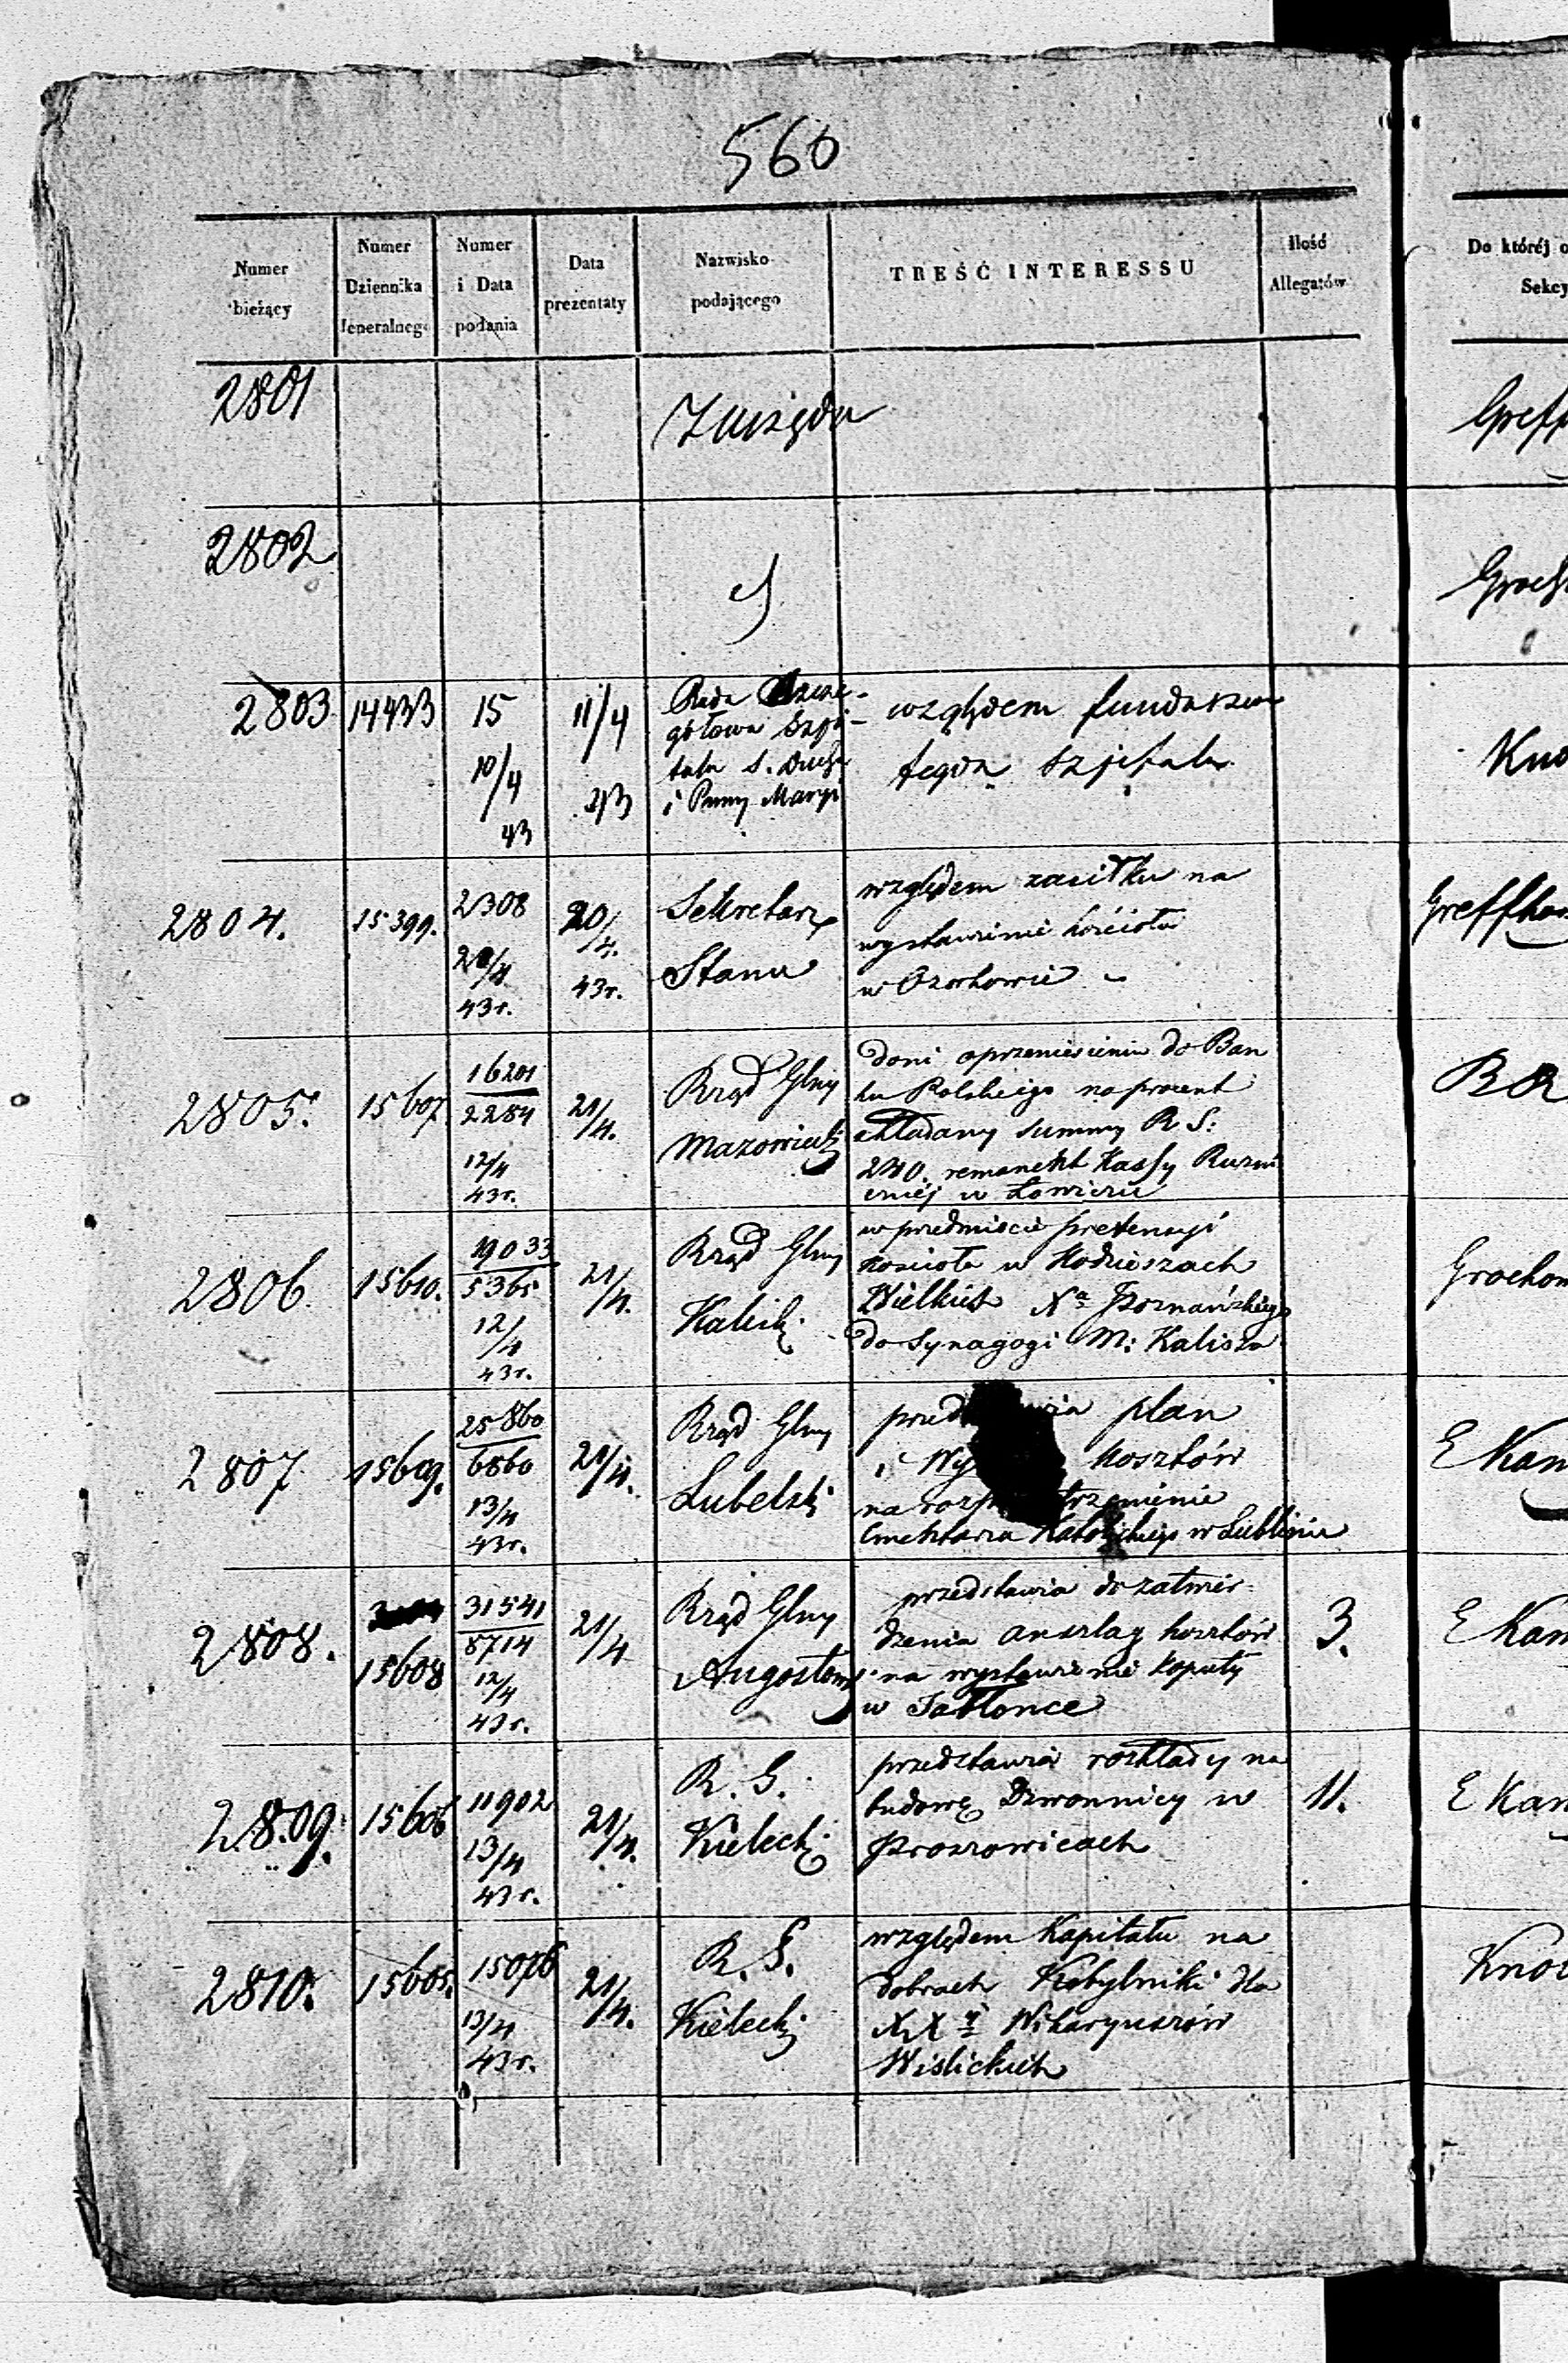 560
Numer bieżący
Numer Dziennika Jeneralnego
Numer i Data podania
Data prezentaty
Nazwisko podającego
TREŚĆ INTERESSU
Ilość Allegatów
Do któréj
Sekcy
2801
Z urzędu
Greff
2802
Groch
2803 14433 15 10/4 43 11/4 43
Rada Szcze-
gółowa Szpi-
tala S. Ducha
i Panny Maryi
względem funduszu
tegoż szpitala
2804. 15399. 2308 20/4 43r. 20/4. 43r.
Sekretarz
Stanu
względem zasiłku na
wystawienie kościoła
w Ozorkowie
Greffkow
2805. 15607 16201 2284 12/4 43r. 21/4.
Rząd Glny
Mazowiecki
doni o przeniesieniu do Ban
ku Polskiego na procent
składany summy R S:
240. remanent Kassy
w Łowiczu
2806. 15610. 19033 5365 12/4 43r. 21/4.
Rząd Glny
Kaliski
w przedmiocie pretensyi
kościoła w
Wielkich Xa Poznańskiego
do Synagogi M: Kalisza
Grochow
2807 15609. 25860 6860 13/4 43r. 21/4.
Rząd Glny
Lubelski
plan
i kosztów
na
Cmentarza Katolickiego w Lublinie
E Kam
2808. 15608 31541 8714 12/4 43r. 21/4
Rząd Glny
Augustows
przedstawia do zatwier-
dzenia anszlag kosztów
na wystawienie kopuły
w Jabłonce
3.
E Kam
2809. 15606 11902 13/4 43r. 21/4.
R. G.
Kielecki
przedstawia rozkłady na
budowę Dzwonnicy w
Proszowicach
11.
E Kam
2810. 15605. 15076 13/4 43r. 21/4.
R. G.
Kielecki
względem Kapitału na
dobrach Kobylniki dla
XX Wikaryuszów
Wiślickich